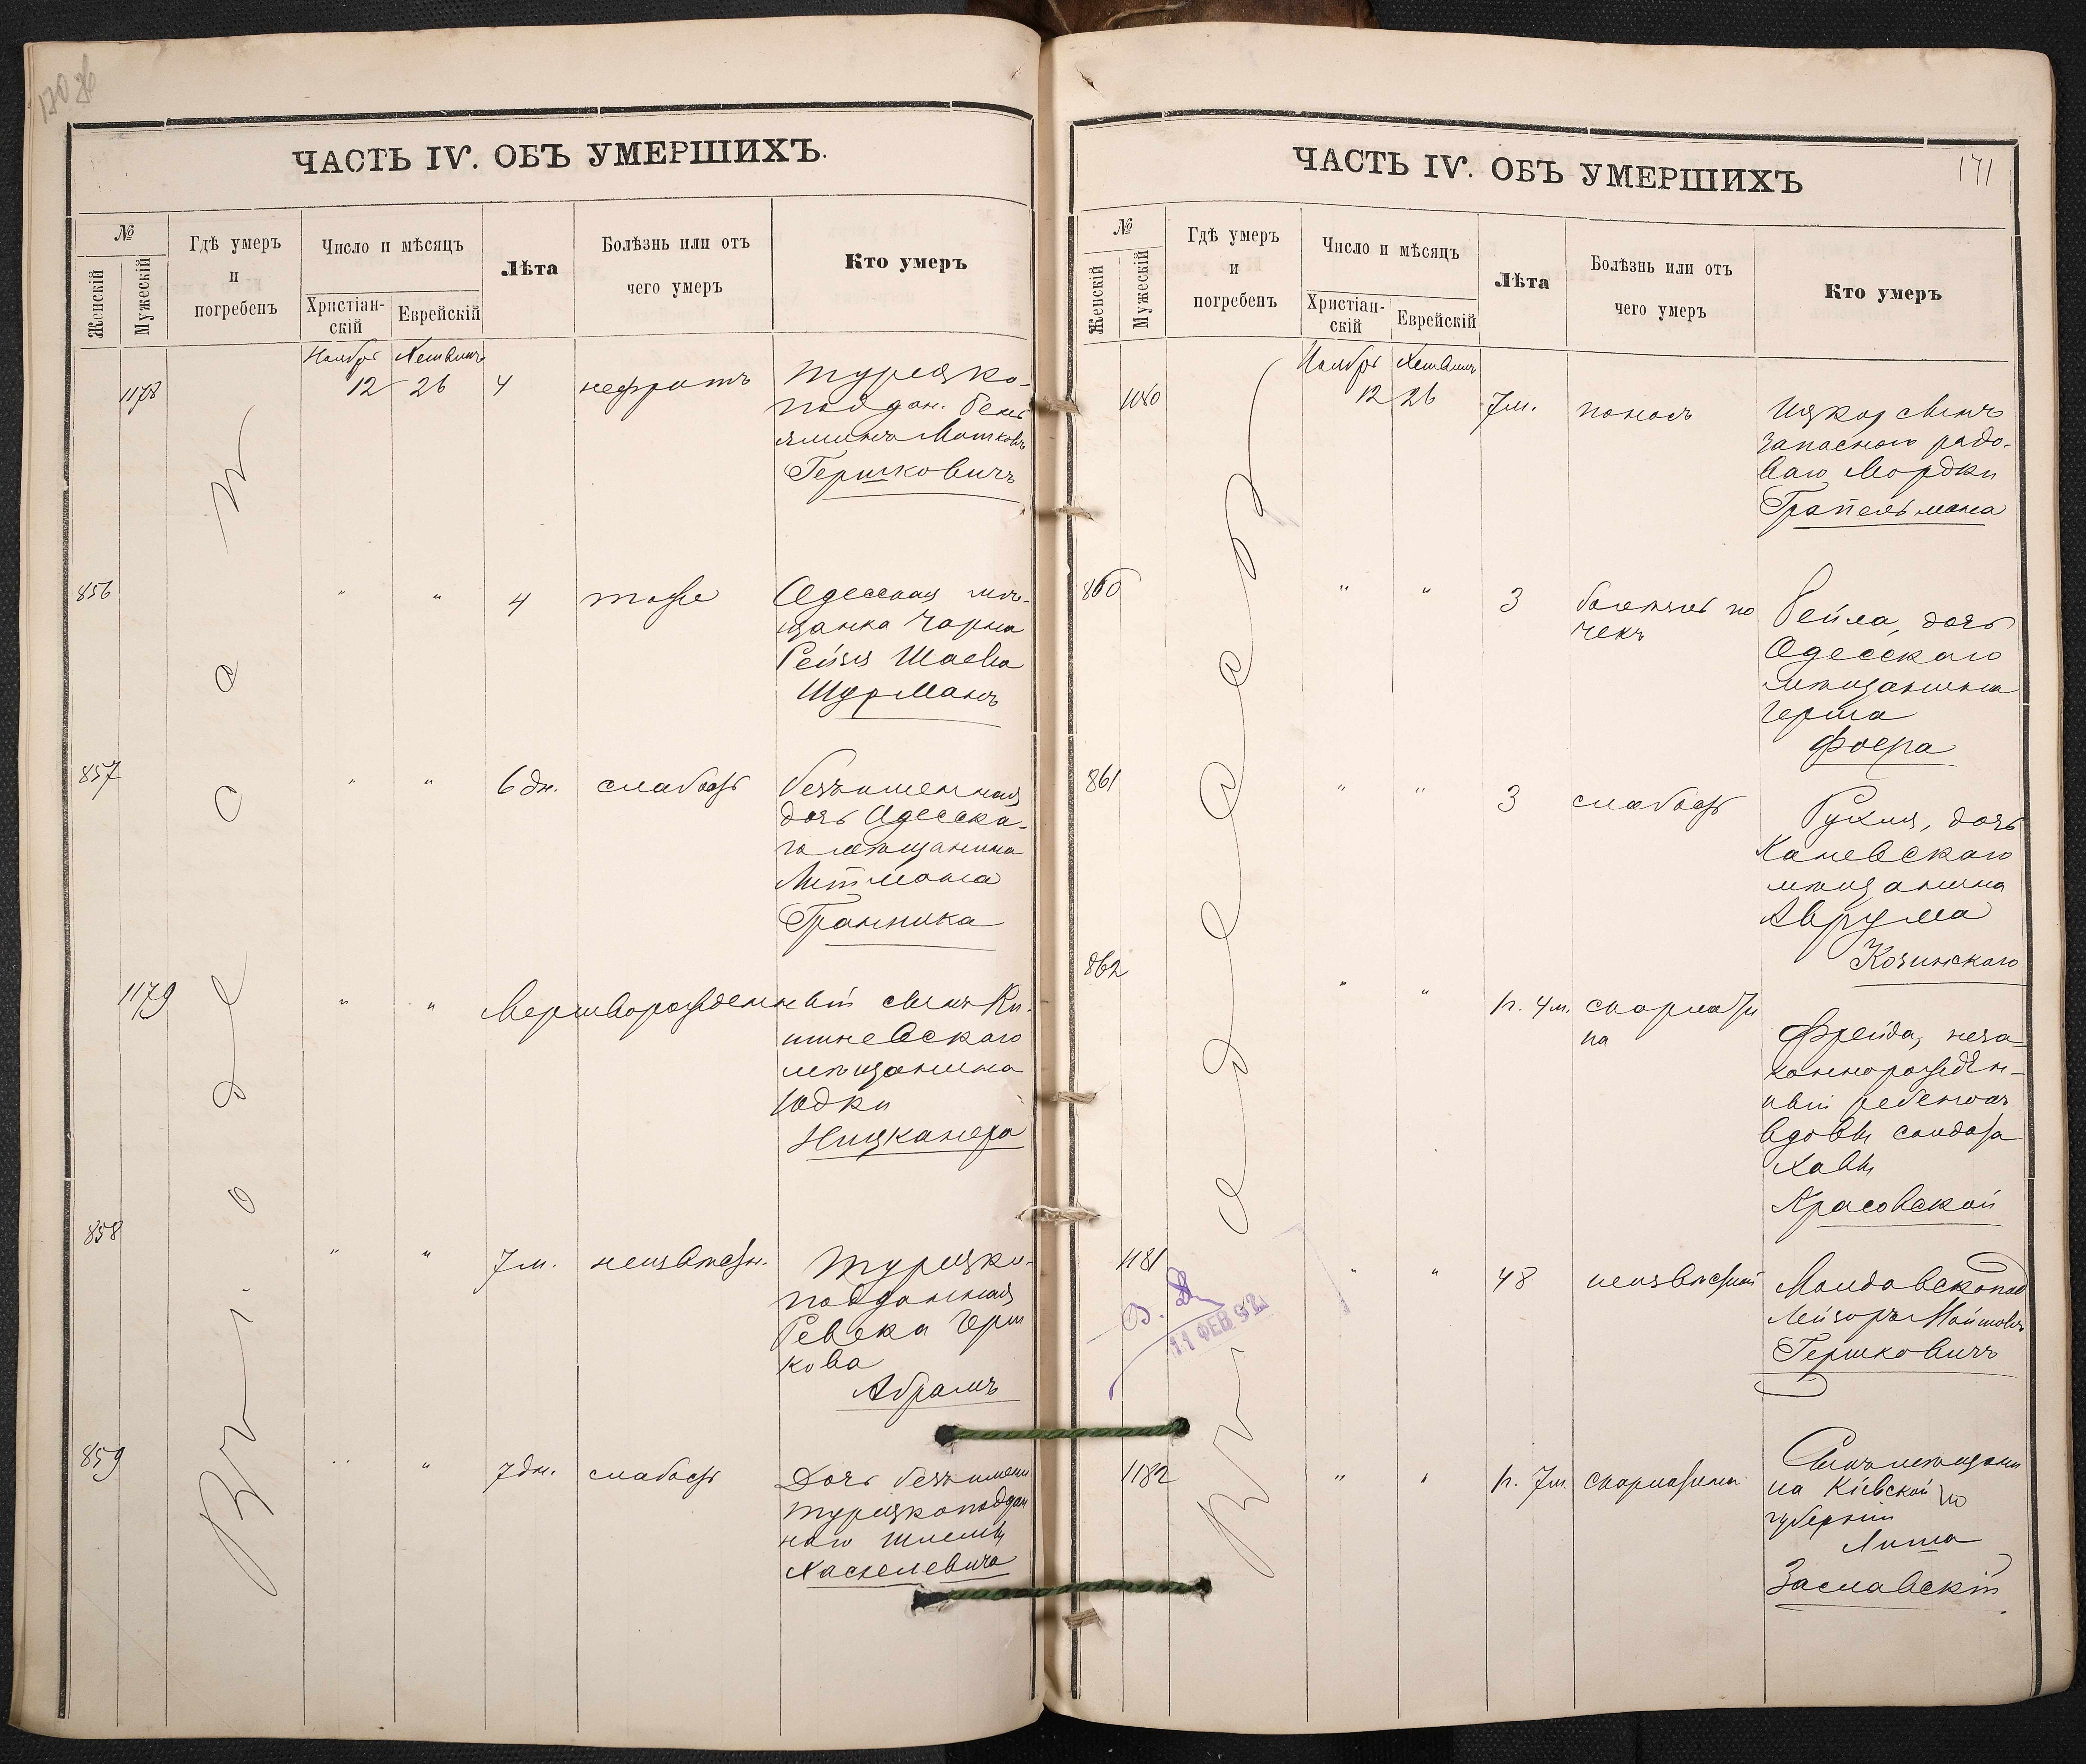 170 об
ЧАСТЬ IV. ОБЪ УМЕРШИХЪ.
№
Женскій
Мужескій
Гдѣ умеръ
и
погребенъ
Число и мѣсяцъ
Христіан-
скій
Еврейскій
Лѣта
Болѣзнь или отъ
чего умеръ
Кто умеръ
Ноябрь
Въ г. Одессѣ
1178
12
26
4
нефритъ
Турецко-
поддан. Бень
яминъ Мошковъ
Гершковичъ
856
"
"
4
тоже
Одесская мѣ-
щанка Чарна
Рейзя Шаева
Шурманъ
857
"
"
6 дн.
слабость
безъименная
дочь Одесска-
го мѣщанина
Литмана
Гранника
1179
"
"
Мертворожденный сынъ Ки-
шиневскаго
мѣщанина
Юдки
858
"
"
7 м.
неизвѣстн.
Турецко-
подданная
Ревека Герш
кова
Абрамъ
859
"
"
7 дн.
слабость
Дочь безъ имени
турецкоподдан
наго Шлемы
Хаскелевича
ЧАСТЬ IV. ОБЪ УМЕРШИХЪ
171
№
Женскій
Мужескій
Гдѣ умеръ
и
погребенъ
Число и мѣсяцъ
Христіан-
скій
Еврейскій
Лѣта
Болѣзнь или отъ
чего умеръ
Кто умеръ
Ноябрь
1180
12
26
7 м.
поносъ
Ицко, сынъ
запаснаго рядо-
ваго Мордки
860
"
"
3
болѣзнь по
чекъ
Бейла, дочь
Одесскаго
мѣщанина
Герша
Фоера
861
"
"
3
слабость
Рухля, дочь
Каневскаго
мѣщанина
Аврума
Козинскаго
862
"
"
1 г. 4 м.
скарлати
на
Фрейда, неза-
коннорожден-
ный ребенокъ
вдовы солдата
Хавы
Красовской
1181
"
"
48
неизвѣстной
Молдавскопод
Лейзоръ
Гершковичъ
11 ФЕВ 92
1182
"
"
1 г. 7 м.
скарлатина
Сынъ мѣщани
на Кіевской
губерніи
Липа
Заславскій